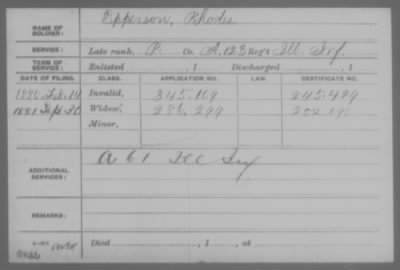 NAME OF SOLDIER: Epperson, Rhodes
SERVICE: Late rank, P. Co. A, 123 Reg't Ill. Inf.
TERM OF SERVICE: Enlisted , 1 Discharged , 1
DATE OF FILING. CLASS. APPLICATION NO. LAW. CERTIFICATE NO.
1880 Feb. 14 Invalid, 345.109 245.429
1881 Sept 30 Widow, 286.299
Minor,
ADDITIONAL SERVICES: A 61 Ill Inf
REMARKS:
Died , 1 , at